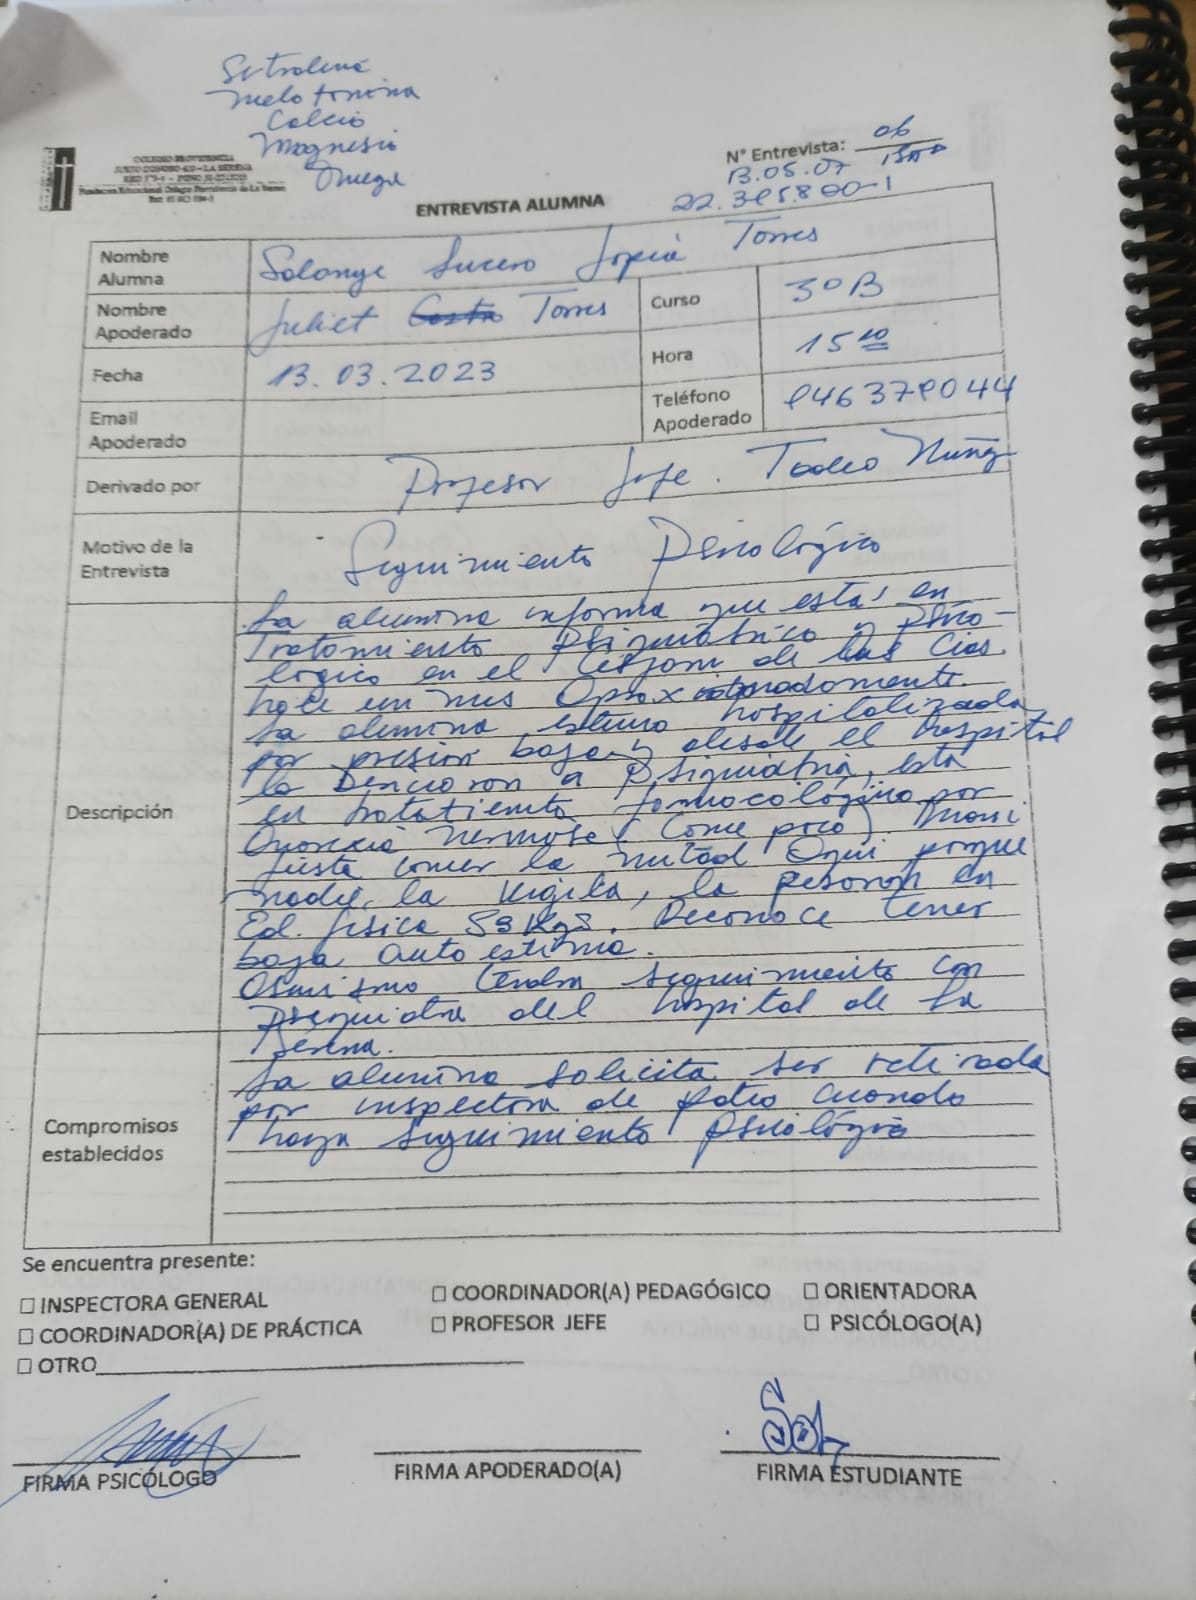 Setralina
Melotonina
Calcio
Magnesio
Omega
COLEGIO PROVIDENCIA
N° Entrevista: 06
13.05.07
ENTREVISTA ALUMNA
Nombre Alumna Solange Lucero Torres
Nombre Apoderado Juliet Torres Curso 3°B
Fecha 13.03.2023 Hora 15
Email Apoderado Teléfono Apoderado
Derivado por Profesor Jefe. Tadeo Nuñez
Motivo de la Entrevista Seguimiento Psicológico
Descripción
La alumna informa que esta en
Tratamiento Psiquiátrico y Psico-
lógico en el de las Cias.
hace un mes
La alumna estuvo hospitalizada
por presión baja y desde el hospital
la a Psiquiatría, está
en farmacológico por
Anorexia Nerviosa (Come poco). Mani
fiesta comer la mitad Aqui porque
nadie la vigila, la pesaron en
Ed. fisica Kgs. Reconoce tener
baja Autoestima.
Asimismo tendra seguimiento con
Psiquiatra del hospital de La
Serena.
Compromisos establecidos
La alumna solicita ser retirada
por inspectora de patio cuando
haya seguimiento psicológico
Se encuentra presente:
☐ INSPECTORA GENERAL ☐ COORDINADOR(A) PEDAGÓGICO ☐ ORIENTADORA
☐ COORDINADOR(A) DE PRÁCTICA ☐ PROFESOR JEFE ☐ PSICÓLOGO(A)
☐ OTRO
FIRMA PSICÓLOGO FIRMA APODERADO(A) FIRMA ESTUDIANTE